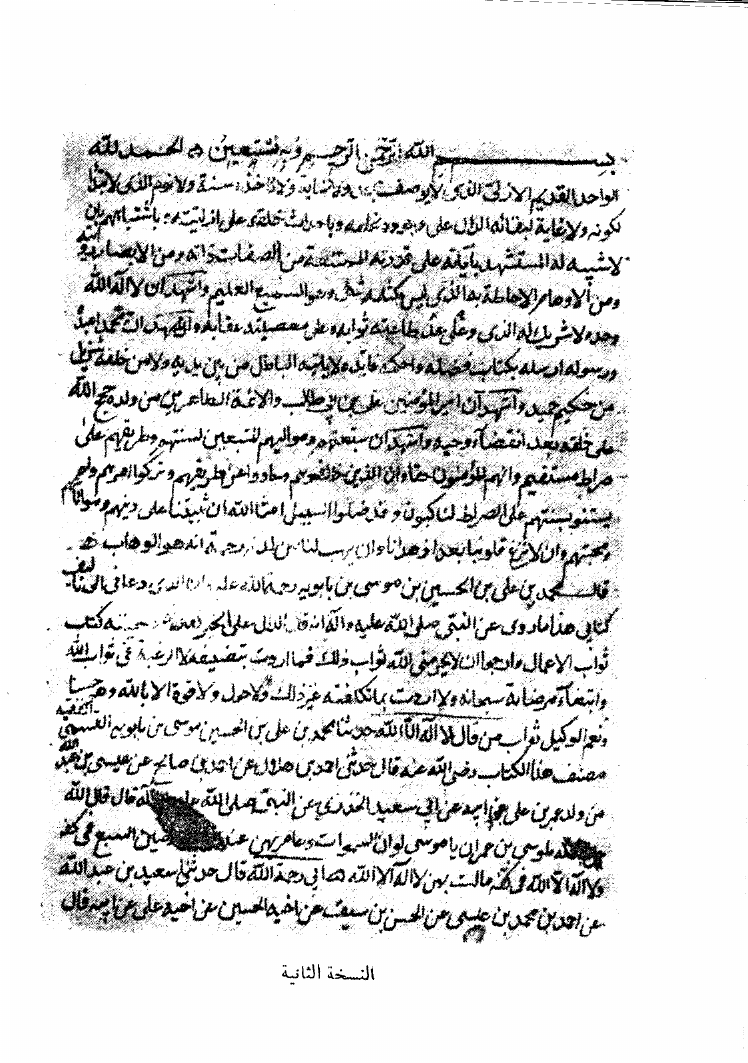 بسم الله الرحمن الرحيم وبه نستعين الحمد لله
الواحد القديم الازلي الذي لا يوصف ولا تأخذه سنة ولا نوم الذي لا ابتداء
لكونه ولا غاية لبقائه الدال على وجوده بخلقه وباحداث خلقه على ازليته وباشتباههم بان
لا شبيه له المستشهد بآياته على قدرته الممتنعة من الصفات ذاته ومن الابصار رؤيته
ومن الاوهام الاحاطة به الذي ليس كمثله شيء وهو السميع العليم واشهد ان لا اله الا الله
وحده لا شريك له الذي وعد على طاعته ثوابه وعلى معصيته عقابه واشهد ان محمدا عبده
ورسوله ارسله بكتاب فصله واحكمه لا يأتيه الباطل من بين يديه ولا من خلفه تنزيل
من حكيم حميد واشهد ان امير المؤمنين علي بن ابي طالب والائمة الطاهرين من ولده حجج الله
على خلقه بعد انقضاء وحيه واشهد ان شيعتهم ومواليهم المتبعين لسنتهم وطريقهم على
صراط مستقيم وانهم المؤمنون حقا وان الذين خالفوهم وحادوا عن طريقهم وتركوا امرهم ولم
يستنوا بسنتهم على الصراط لناكبون وقد ضلوا السبيل الله ان يثبتنا على دينهم وموالاتهم
ومحبتهم وان لا يزغ قلوبنا بعد اذ هدانا وان يهب لنا من لدنه رحمة انه هو الوهاب
قال محمد بن علي بن الحسين بن موسى بن بابويه رحمة الله عليه ان الذي دعاني الى تأليف
كتابي هذا ما روي عن النبي صلى الله عليه وآله انه قال الدال على الخير كفاعله كتاب
ثواب الاعمال وارجو ان لا يحرمني الله ثواب ذلك فما اردت بتصنيفه الا الرغبة في ثواب الله
وابتغاء مرضاته سبحانه ولا اردت بما تكلفته غير ذلك ولا حول ولا قوة الا بالله وهو حسبنا
ونعم الوكيل ثواب من قال لا اله الا الله حدثنا محمد بن علي بن الحسين موسى بن بابويه الفقيه القمي
مصنف هذا الكتاب رضي الله عنه قال حدثني احمد بن هلال عن احمد بن صالح عن عيسى بن عبد الله
من ولد عمر بن علي عن ابيه عن ابي سعيد الخدري عن النبي صلى الله عليه وآله قال قال الله
لموسى بن عمران يا موسى لو ان السموات وعامريهن عندي والارضين السبع في كفة
ولا اله الا الله في كفة مالت بهن لا اله الا الله ابي رحمة الله قال حدثني سعيد بن عبد الله
عن احمد بن محمد بن عيسى عن الحسن بن سيف عن اخيه الحسين عن اخيه علي عن ابيه قال
النسخة الثانية